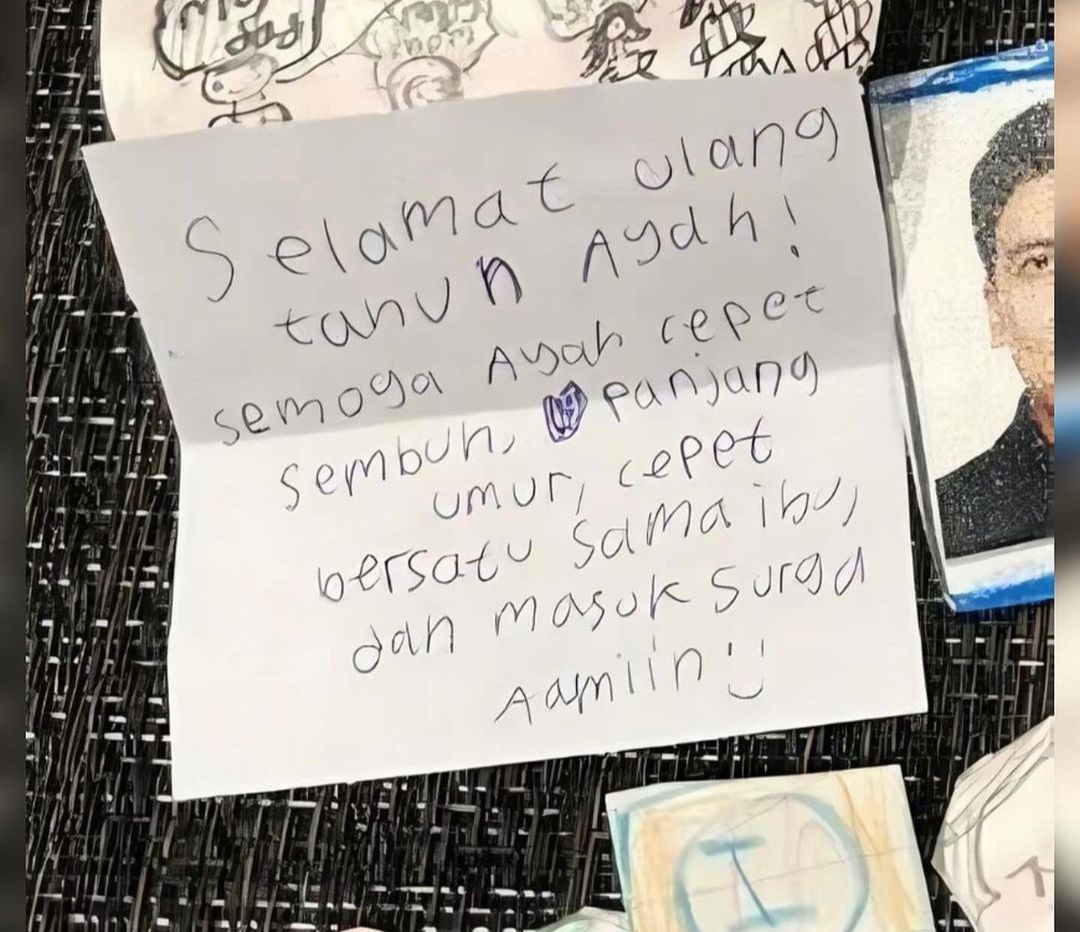 my dad
Selamat ulang
tahun Ayah!
semoga Ayah cepet
sembuh, panjang
umur, cepet
bersatu sama ibu,
dan masuk surga
Aamiin :)
I